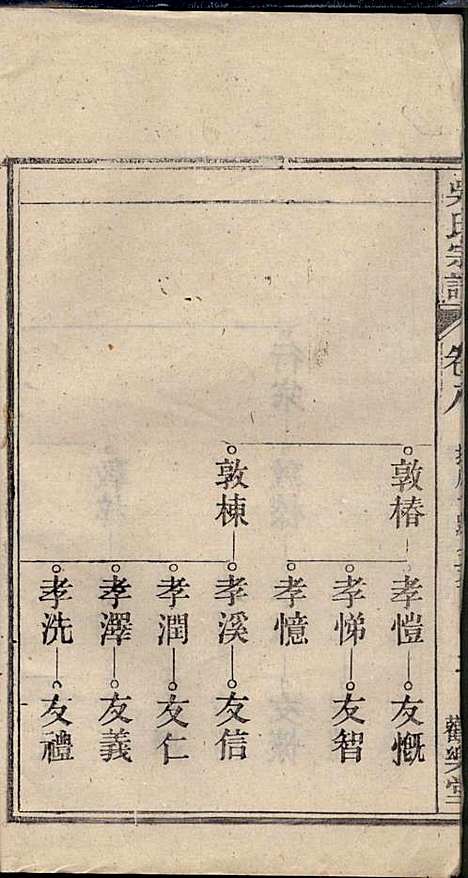 吳氏宗譜
卷八
敦椿
敦棟
孝愷
孝悌
孝憶
孝溪
孝潤
孝澤
孝洗
友慨
友智
友信
友仁
友義
友禮